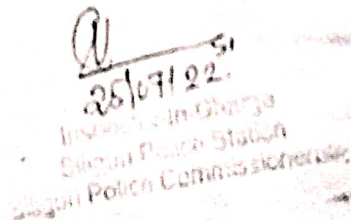 25/07/22.
Inspector-in-Charge
Siliguri Police Station
Siliguri Police Commissionerate